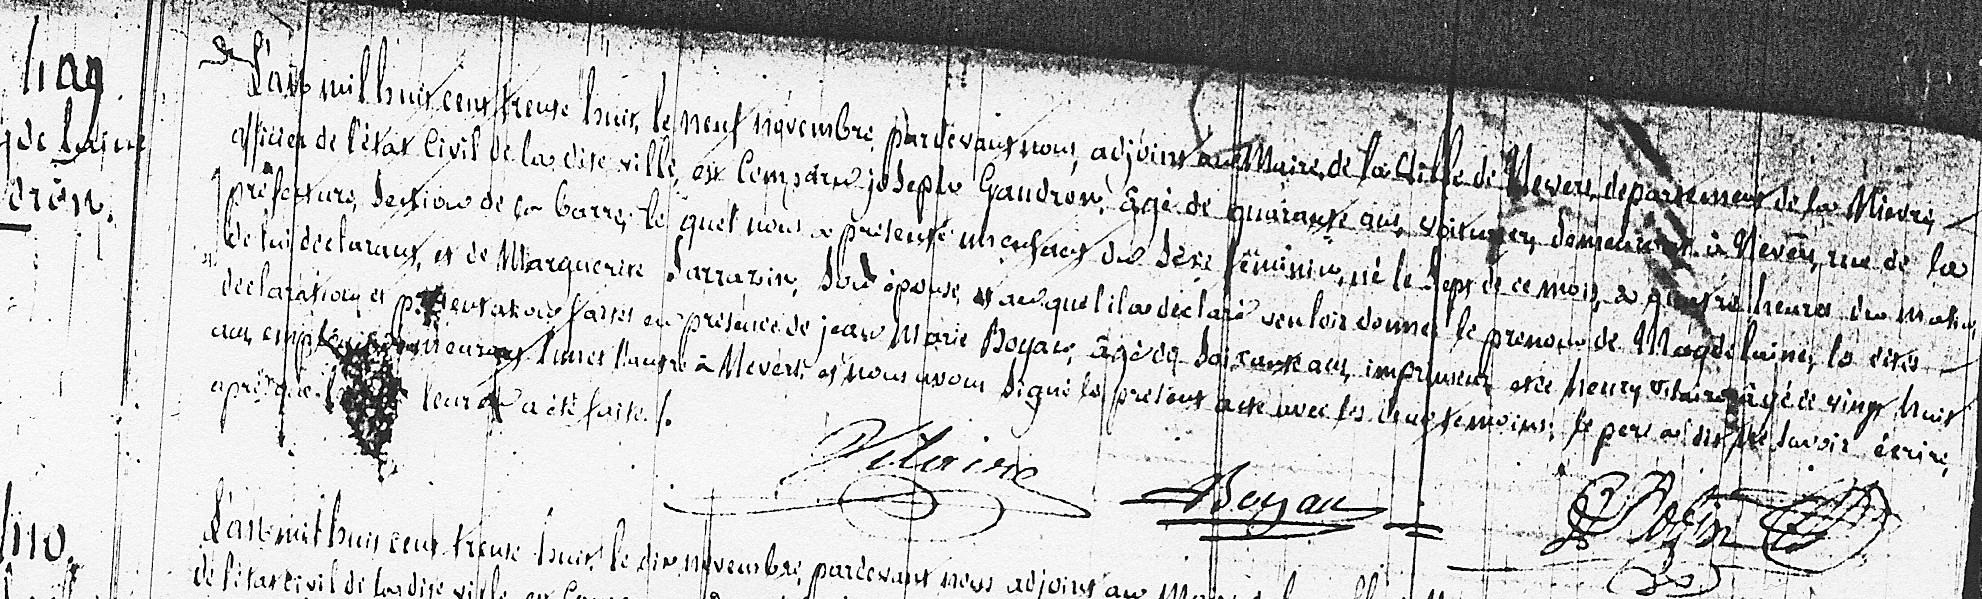 hag
de laine
dron.
L'an mil huit cent trente huit, le neuf novembre, pardevant nous, adjoint au Maire de la Ville de Nevers, departement de la Nievre,
officier de l'état Civil de la dite ville, est Comparu joseph Gaudron, âgé de quarante ans, voiturier, demeurant à Nevers, rue de la
préfecture, Section de la barre, le quel nous a présenté un enfant du sexe féminin, né le sept de ce mois, a quatre heures du matin,
de lui déclarant, et de Marguerite Sarrazin, son épouse, et au quel il a déclaré vouloir donner le prenom de Magdelaine, les dites
déclaration et présentation faites en présence de jean Marie Boyau, âgé de soixante ans, imprimeur, et de henry vilaire âgé de vingt huit
ans, employé demeurant l'un et l'autre à Nevers, et nous avons signé le présent acte avec les deux témoins, le pere a dit ne savoir écrire,
après que leur a été faite /.
Vilaire
Boyau
Robin
no.
L'an mil huit cent trente huit, le dix novembre, pardevant nous adjoint au
de l'état civil de la dite ville, est